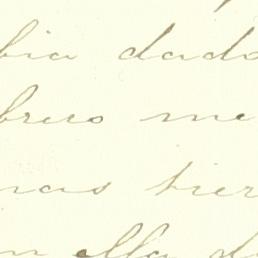 bia dado
brero me
nas tier
n ella d